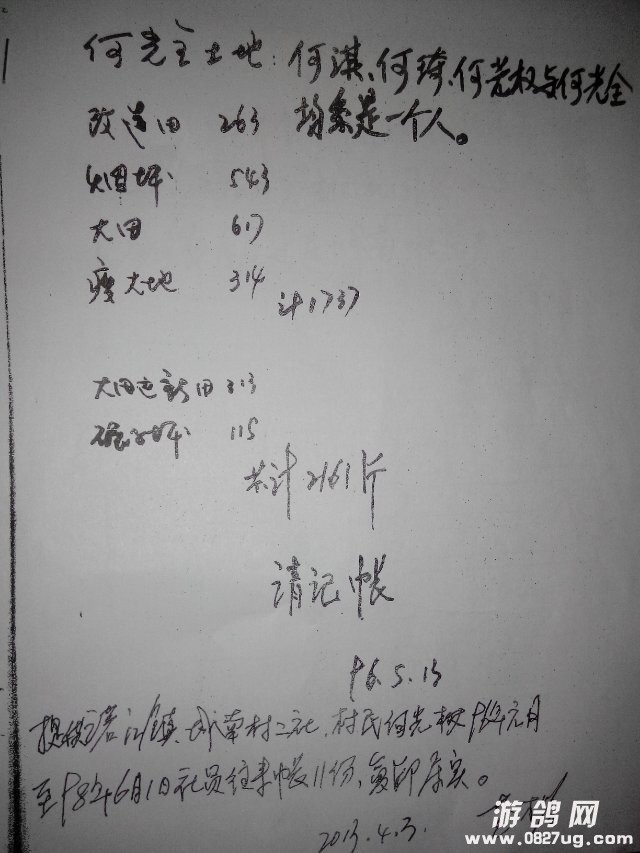 何光全土地:何淇、何琦、何光权与何光全
是一个人。
改造田 263
大田坪 543
大田 617
瘦大地 314
计1737
大田边新田 313
115
共计2161斤
请记帐
96.5.13
江镇、城南村二社、村民何光权 年元月
至98年6月1日社员往来帐11份、复印属实。
2013.4.3.
游鸽网
www.0827ug.com